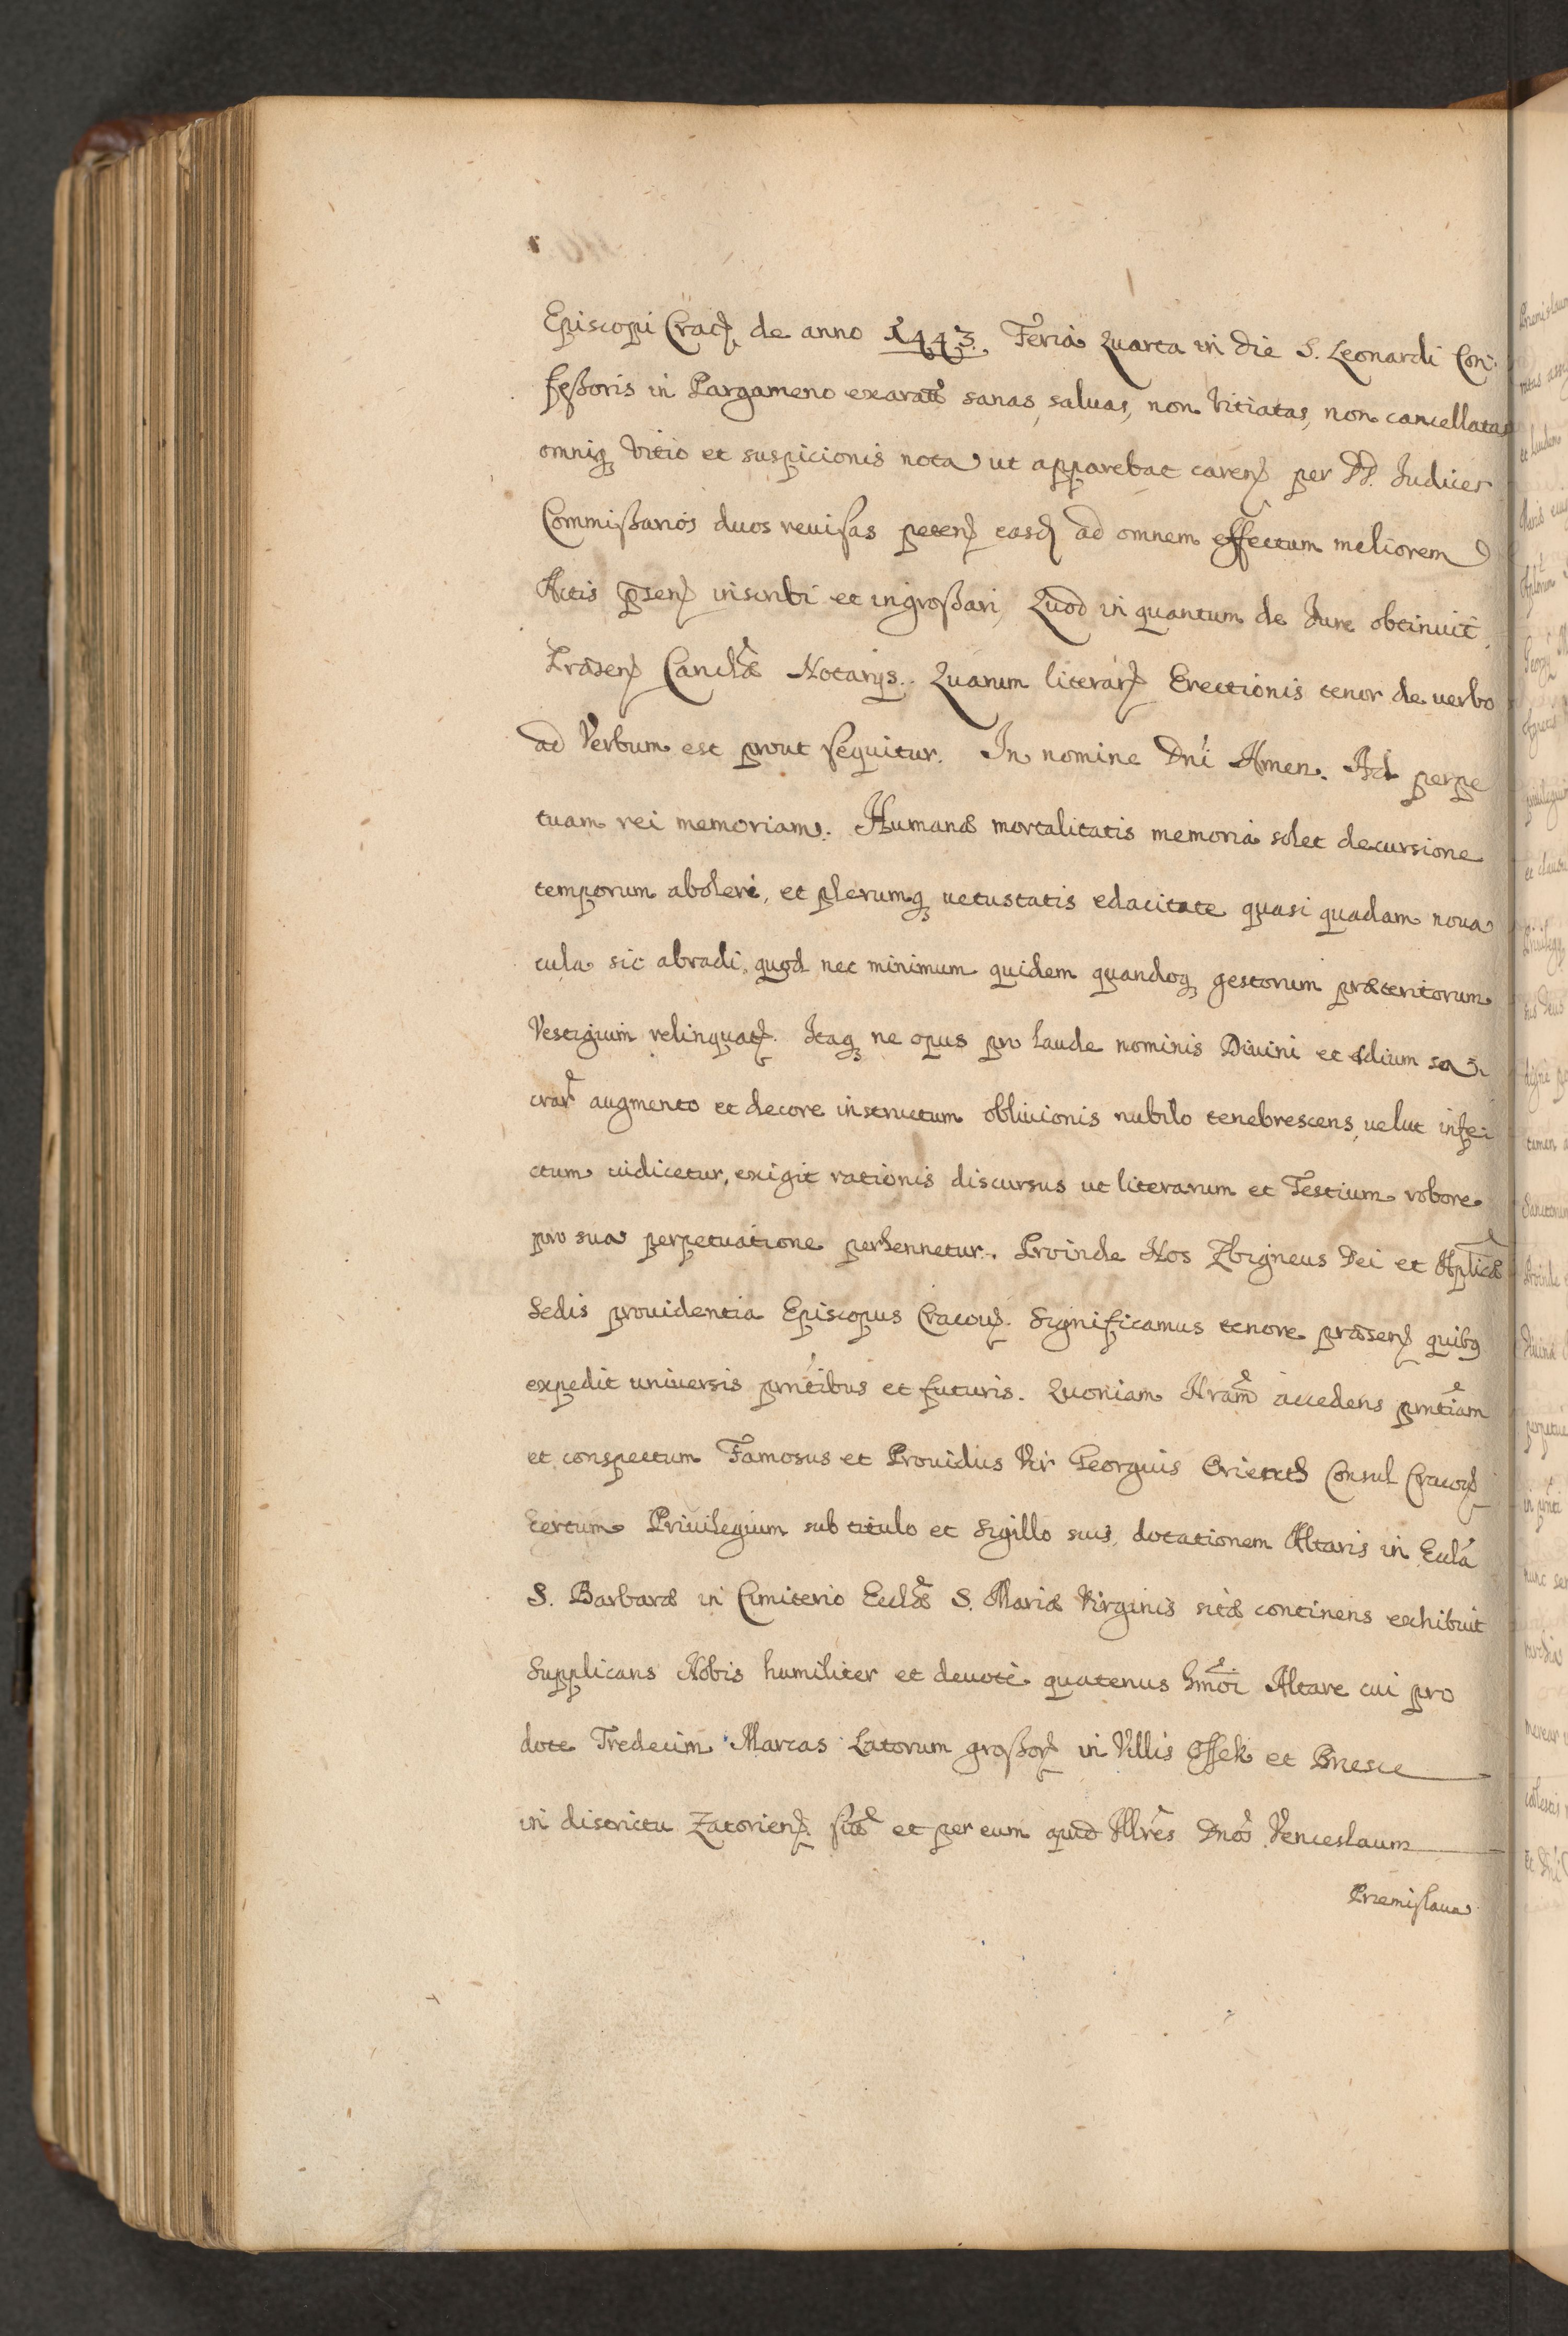 Episcopi Cracꝭ de anno 1443. Feria Quarta in die S. Leonardi Con:
feßoris in Pargameno exaratas sanas, saluas, non Vitiatas, non cancellatas
omniq́ꝫ Vitio et suspicionis nota ut apparebat carenꝭ per DD. Judices
Commißarios duos reuisas petenꝭ easdꝭ ad omnem effectum meliorem
Actis p̄senꝭ inscribi et ingroßari, Quod in quantum de Jure obtinuit
Præsenꝭ Cancllæ Notarijs. Quarum literarꝭ Erectionis tenor de uerbo
ad Verbum est prout sequitur. In nomine Dni Amen. Ad perpe
tuam rei memoriam. Humanæ mortalitatis memoria solet decursione
temporum aboleri, et plerumqꝫ uetustatis edacitate quasi quadam noua
cula sic abradi, quod nec minimum quidem quandoqꝫ gestorum præteritorum
Vestigium relinquatꝭ. Itaqꝫ ne opus pro laude nominis Diuini et ędium sa:
crar̃ augmento et decore instructum obliuionis nubilo tenebrescens, uelut infe:
ctum iudicetur, exigit rationis discursus ut literarum et Testium robore
pro sua perpetuatione perhennetur. Proinde Nos Zbigneus Dei et Aplicæ
Sedis prouidentia Episcopus Cracouꝭ. Significamus tenore præsenꝭ quibꝫ
expedit uniuersis prntibus et futuris. Quoniam Nram accedens prntiam
et conspectum Famosus et Prouidus Vir Georgius Consul Cracouꝭ
certum Priuilegium sub titulo et Sigillo suis, dotationem Altaris in Eccla
S. Barbaræ in Cimiterio Ecclæ S. Mariæ Virginis sitæ continens exhibuit
Supplicans Nobis humiliter et deuotè quatenus hmoi Altare cui pro
dote Tredecim Marcas Latorum großorꝭ in Villis Ossek et Brzesce
in districtu Zatorienꝭ. sitis et per eum apud Illres Dnos Venceslaum
Przemislaua